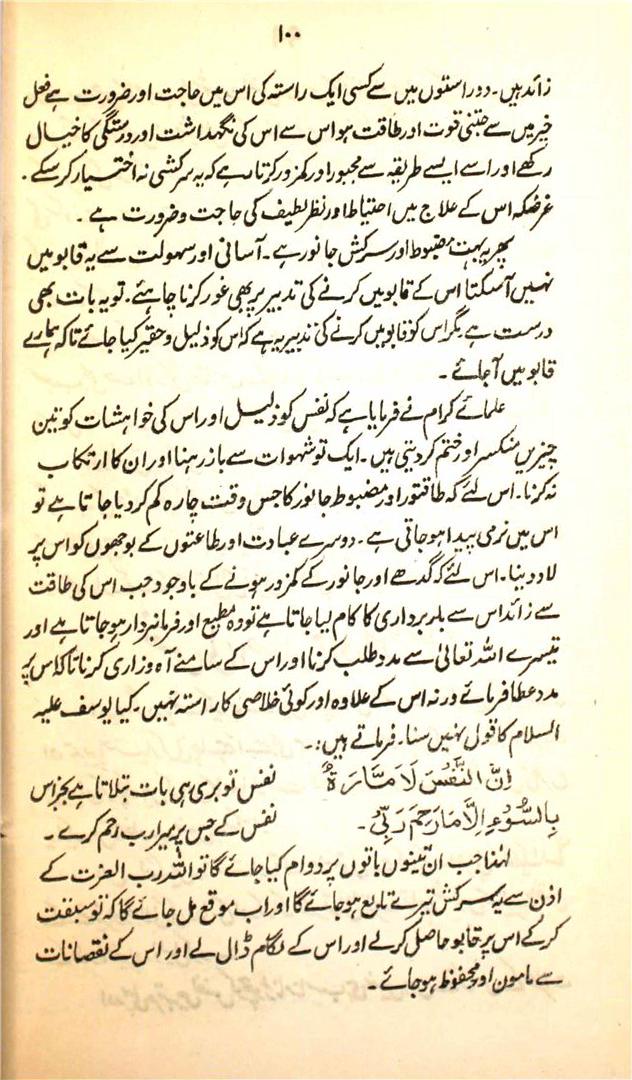 ۱۰۰
زائد ہیں۔ دو راستوں میں سے کسی ایک راستہ کی اس میں حاجت اور ضرورت ہے فعل
خیر میں سے جتنی قوت اور طاقت ہو اس سے اس کی نگہداشت اور درستگی کا خیال
رکھے اور اسے ایسے طریقہ سے مجبور اور کمزور کرتا رہے کہ یہ سرکشی نہ اختیار کر سکے۔
غرضکہ اس کے علاج میں احتیاط اور نظر لطیف کی حاجت و ضرورت ہے۔
پھر یہ بہت مضبوط اور سرکش جانور ہے۔ آسانی اور سہولت سے یہ قابو میں
نہیں آسکتا اس کے قابو میں کرنے کی تدبیر پر بھی غور کرنا چاہئے۔ تو یہ بات بھی
درست ہے مگر اس کو قابو میں کرنے کی تدبیر یہ ہے کہ اس کو ذلیل و حقیر کیا جائے تاکہ ہمارے
قابو میں آجائے۔
علمائے کرام نے فرمایا ہے کہ نفس کو ذلیل اور اس کی خواہشات کو تین
چیزیں منکسر اور ختم کر دیتی ہیں۔ ایک تو شہوات سے باز رہنا اور ان کا ارتکاب
نہ کرنا۔ اس لئے کہ طاقتور اور مضبوط جانور کا جس وقت چارہ کم کر دیا جاتا ہے تو
اس میں نرمی پیدا ہو جاتی ہے۔ دوسرے عبادت اور طاعتوں کے بوجھوں کو اس پر
لاد دینا۔ اس لئے کہ گدھے اور جانور کے کمزور ہونے کے باوجود جب اس کی طاقت
سے زائد اس سے بار برداری کا کام لیا جاتا ہے تو وہ مطیع اور فرمانبردار ہو جاتا ہے اور
تیسرے اللہ تعالیٰ سے مدد طلب کرنا اور اس کے سامنے آہ و زاری کرنا تاکہ اس پر
مدد عطا فرمائے ورنہ اس کے علاوہ اور کوئی خلاصی کا راستہ نہیں۔ کیا یوسف علیہ
السلام کا قول نہیں سنا۔ فرماتے ہیں:۔
اِنَّ النَّفْسَ لَاَمَّارَۃٌ نفس تو بری ہی بات بتلاتا ہے بجز اس
بِالسُّوْءِ اِلَّا مَا رَحِمَ رَبِّیْ۔ نفس کے جس پر میرا رب رحم کرے۔
لہٰذا جب ان تینوں باتوں پر دوام کیا جائے گا تو اللہ رب العزت کے
اذن سے یہ سرکش تیرے تابع ہو جائے گا اور اب موقع مل جائے گا کہ تو سبقت
کر کے اس پر قابو حاصل کر لے اور اس کے لگام ڈال لے اور اس کے نقصانات
سے مامون اور محفوظ ہو جائے۔